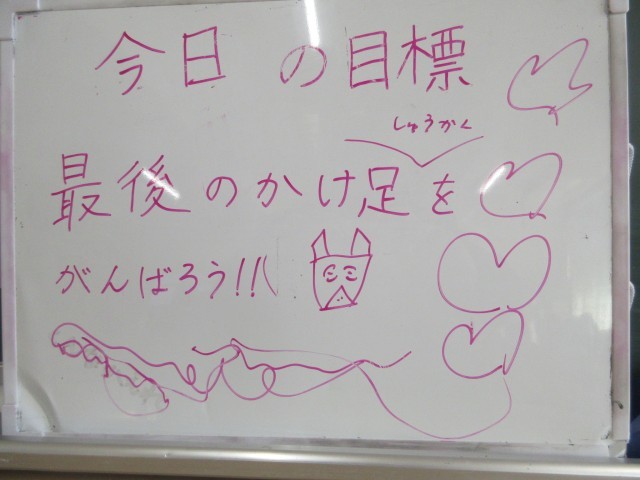 今日の目標
しゅうかん
最後のかけ足を
がんばろう!!